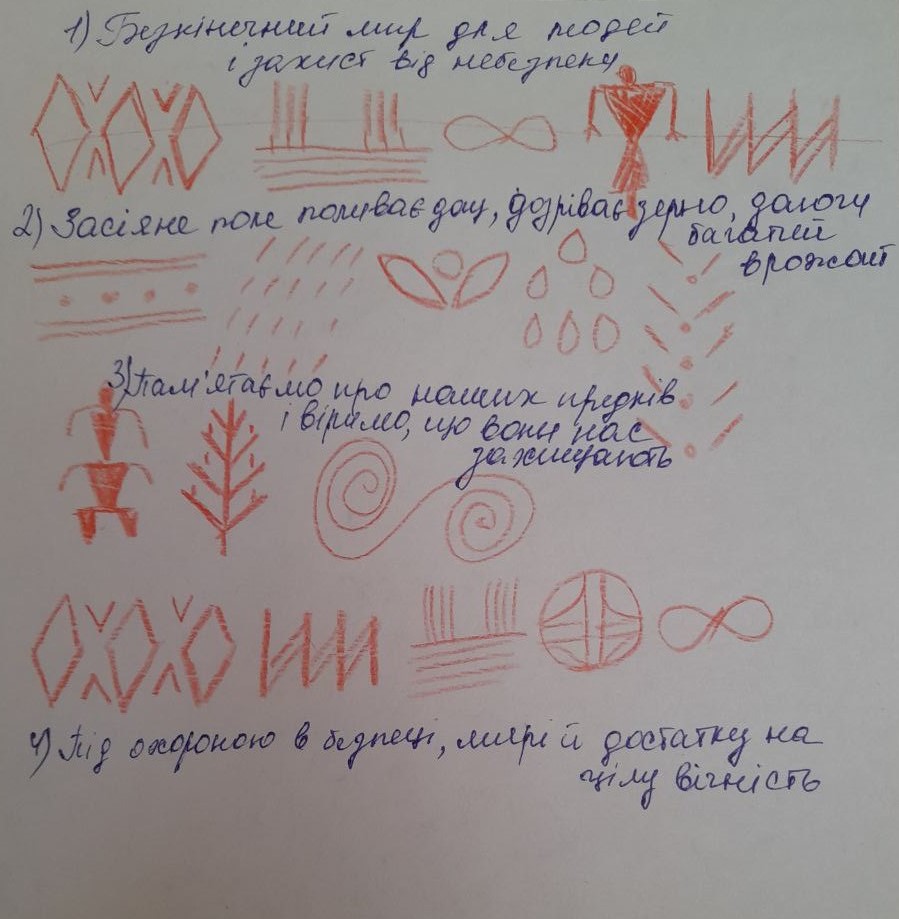 1) Безкінечний мир для людей
і захист від небезпеки
2) Засіяне поле поливає дощ, дозріває зерно,
багатий
врожай
3) Пам'ятаємо про наших предків
і віримо, що вони нас
захищають
4) Під охороною в безпеці, мирі й достатку на
цілу вічність